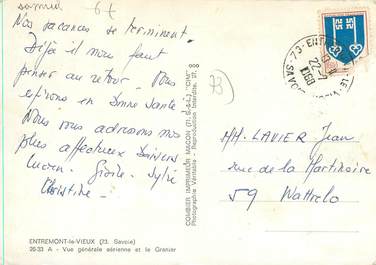 samedi 6h
Nos vacances se terminent.
Déjà il nous faut
penser au retour. Nous
espérons en bonne santé
Nous vous adressons nos
plus affectueux baisers
Lucien. Gisèle. Sylvie
Christine.
ENTREMONT-le-VIEUX (73. Savoie)
20-33 A - Vue générale aérienne et le Granier
COMBIER IMPRIMEUR MACON (71. S.-&-L.) "CIM"
Photographie Véritable - Reproduction Interdite.
73
73 - ENT
LE-VIEUX
SAVOIE
22-
1968
MH. LAVIER Jean
rue de la Martinoire
59 Wattrelo